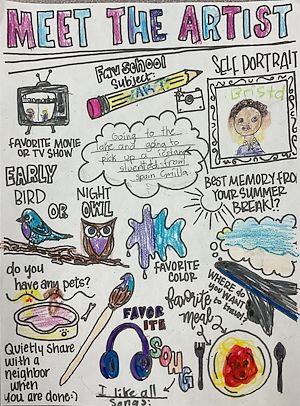 MEET THE ARTIST
Fav school
subject:
ART
SELF PORTRAIT
FAVORITE MOVIE
OR TV SHOW
Going to the
lake and going to
pick up a
from
spain
EARLY
BIRD
OR
NIGHT
OWL
BEST MEMORY FRO
YOUR SUMMER
BREAK!?
FAVORITE
COLOR
do you
have any pets?
WHERE DO
YOU WANT
to travel?
FAVOR
ITE
SONG
favorite
meal
Quietly share
with a
neighbor
when
you are done:)
I like all
songs.